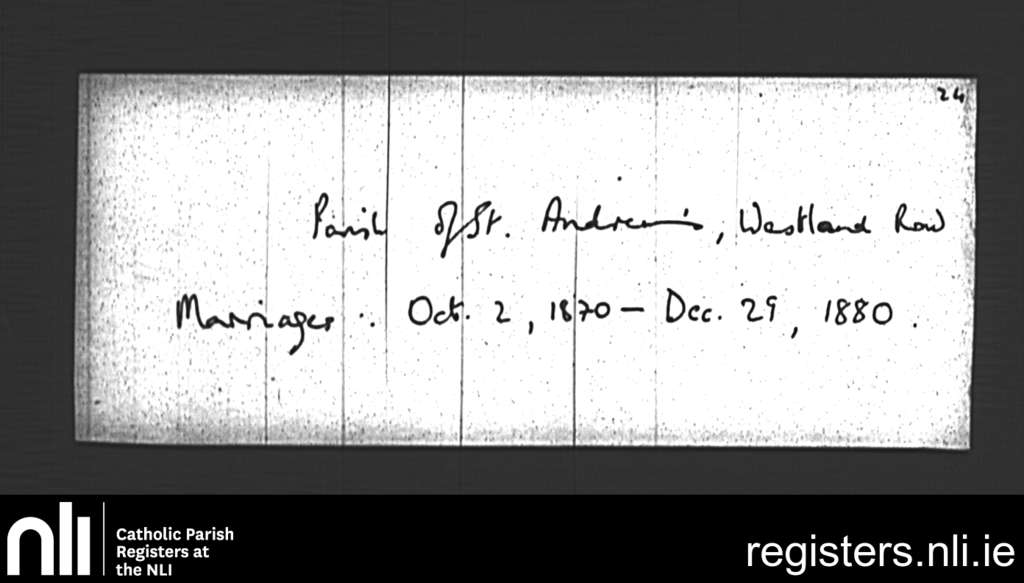 24
Parish of St. Andrew's, Westland Row
Marriages: Oct. 2, 1870 – Dec. 29, 1880.
nli
Catholic Parish
Registers at
the NLI
registers.nli.ie